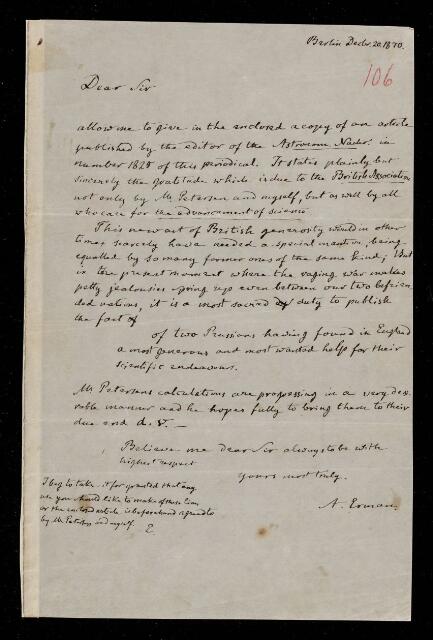 Berlin Decbr. 20. 1870.
106
Dear Sir
allow me to give in the enclosed a copy of an article
published by the editor of the Astronom. Nachr. in
number 1825 of this periodical. It states plainly but
sincerely the gratitude which is due to the British Association
not only by Mr Petersen and myself, but as well by all
who care for the advancement of science.
This new act of British generosity would in other
times scarcely have needed a special mention, being
equalled by so many former ones of the same kind; But
in the present moment where the raging war makes
petty jealousies spring up even between our two befrien
ded nations, it is a most sacred duty to publish
the fact of
of two Prussians having found in England
a most generous and most wanted help for their
scientific endeavours.
Mr Petersens calculations are progressing in a very desi
rable manner and he hopes fully to bring them to their
due end
Believe me dear Sir always to be with
highest respect
yours most truly.
A. Erman.
I beg to take it for granted that any
use you should like to make of these lines
or the enclosed article is beforehand agreed to
by Mr Petersen and myself. E